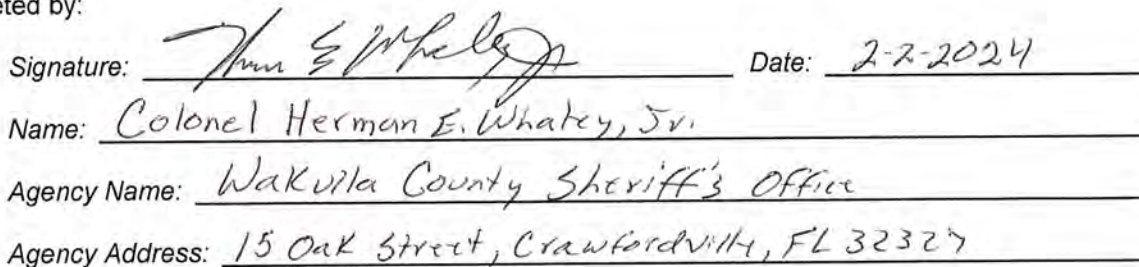 eted by:
Signature: Date: 2-2-2024
Name: Colonel Herman E. Whaley, Jr.
Agency Name: Wakulla County Sheriff's Office
Agency Address: 15 Oak Street, Crawfordville, FL 32327